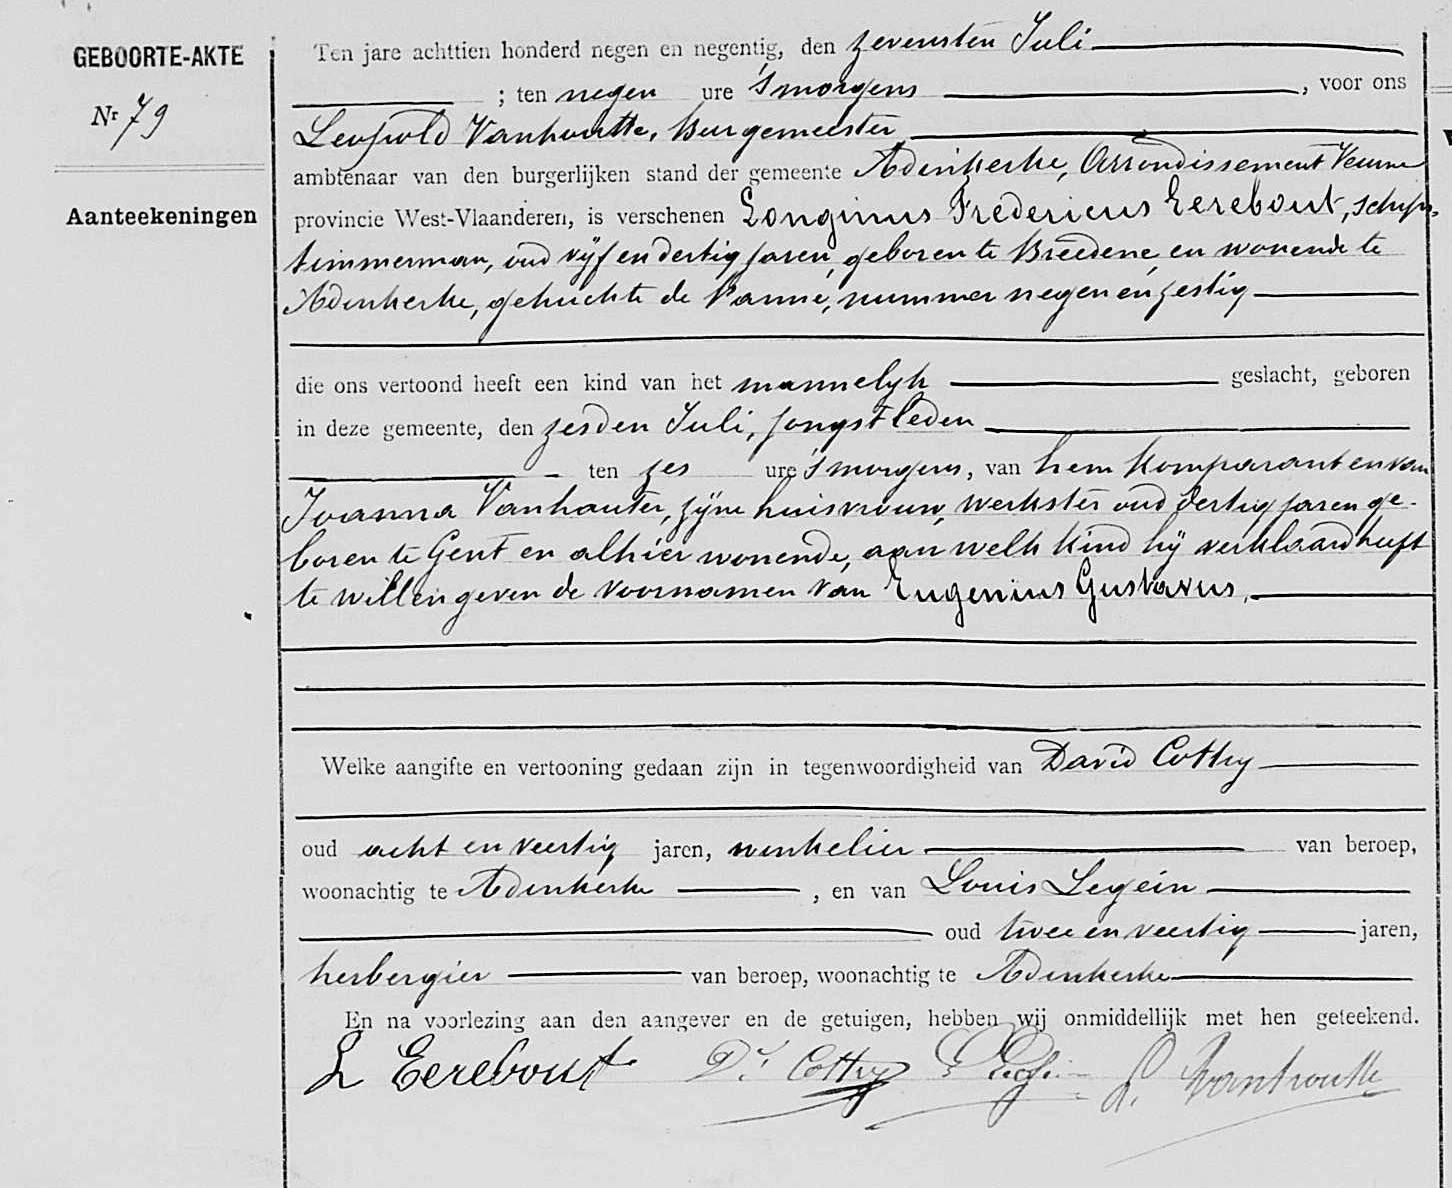 GEBOORTE-AKTE
Nr 79
Aanteekeningen
Ten jare achttien honderd negen en negentig, den zevensten Juli
; ten negen ure 's morgens, voor ons
Leopold Vanhoutte, Burgemeester
ambtenaar van den burgerlijken stand der gemeente Adinkerke, Arrondissement Veurne
provincie West-Vlaanderen, is verschenen Longinus Fredericus Eerebout, scheeps-
timmerman, oud vijf en dertig jaren, geboren te Breedene, en wonende te
Adinkerke, gehuchte de Panne, nummer negen en zestig
die ons vertoond heeft een kind van het mannelyk geslacht, geboren
in deze gemeente, den zesden Juli, jongstleden
ten zes ure 's morgens, van hem komparant en van
Joanna Vanhauter, zijne huisvrouw, werkster oud dertig jaren ge-
boren te Gent en alhier wonende, aan welk kind hij verklaard heeft
te willen geven de voornamen van Eugenius Gustavus,
Welke aangifte en vertooning gedaan zijn in tegenwoordigheid van David Cottry
oud acht en veertig jaren, winkelier van beroep,
woonachtig te Adinkerke, en van Louis Legein
oud twee en veertig jaren,
herbergier van beroep, woonachtig te Adinkerke
En na voorlezing aan den aangever en de getuigen, hebben wij onmiddellijk met hen geteekend.
L Eerebout Dd Cottry L Legein L. Vanhoutte